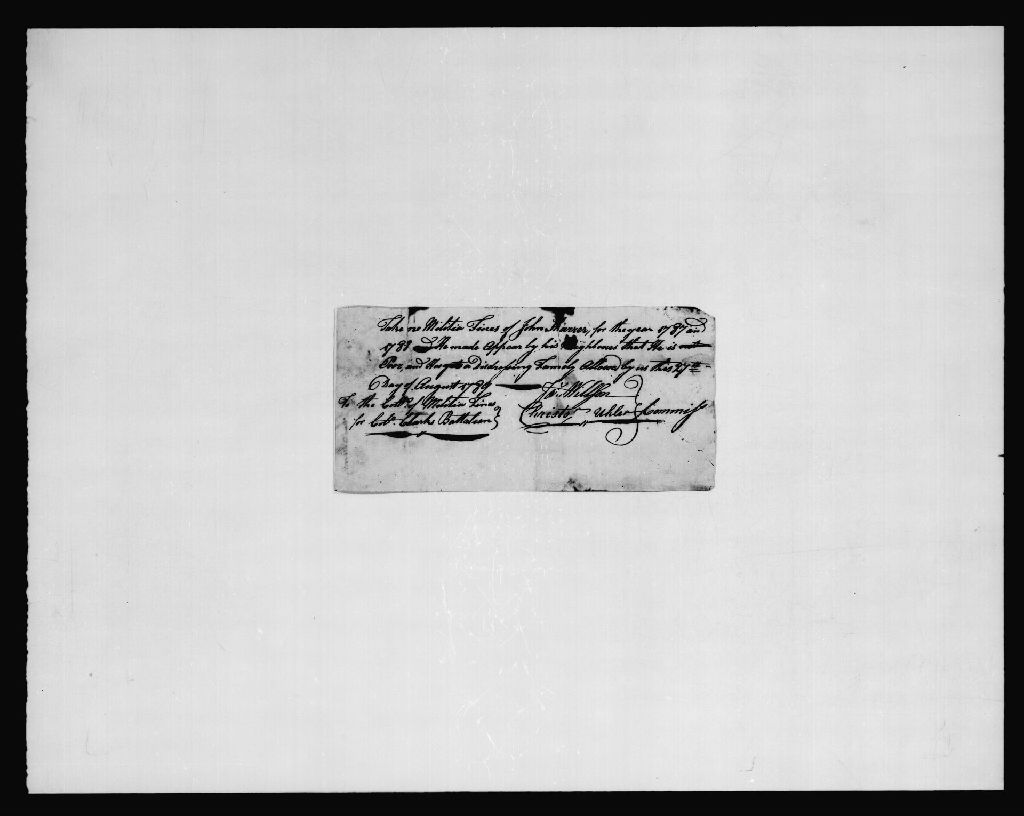 Take no Militia Fines of John for the year 1787 and
1788 He made Appear by his Neighbours that He is
Poor, and Hes got a Distressing Family Allowed by us this 27th
Day of August 1789
To the Collr of Militia Fines
for Coln. Clarks Battalion
Christr Uhler Commiss